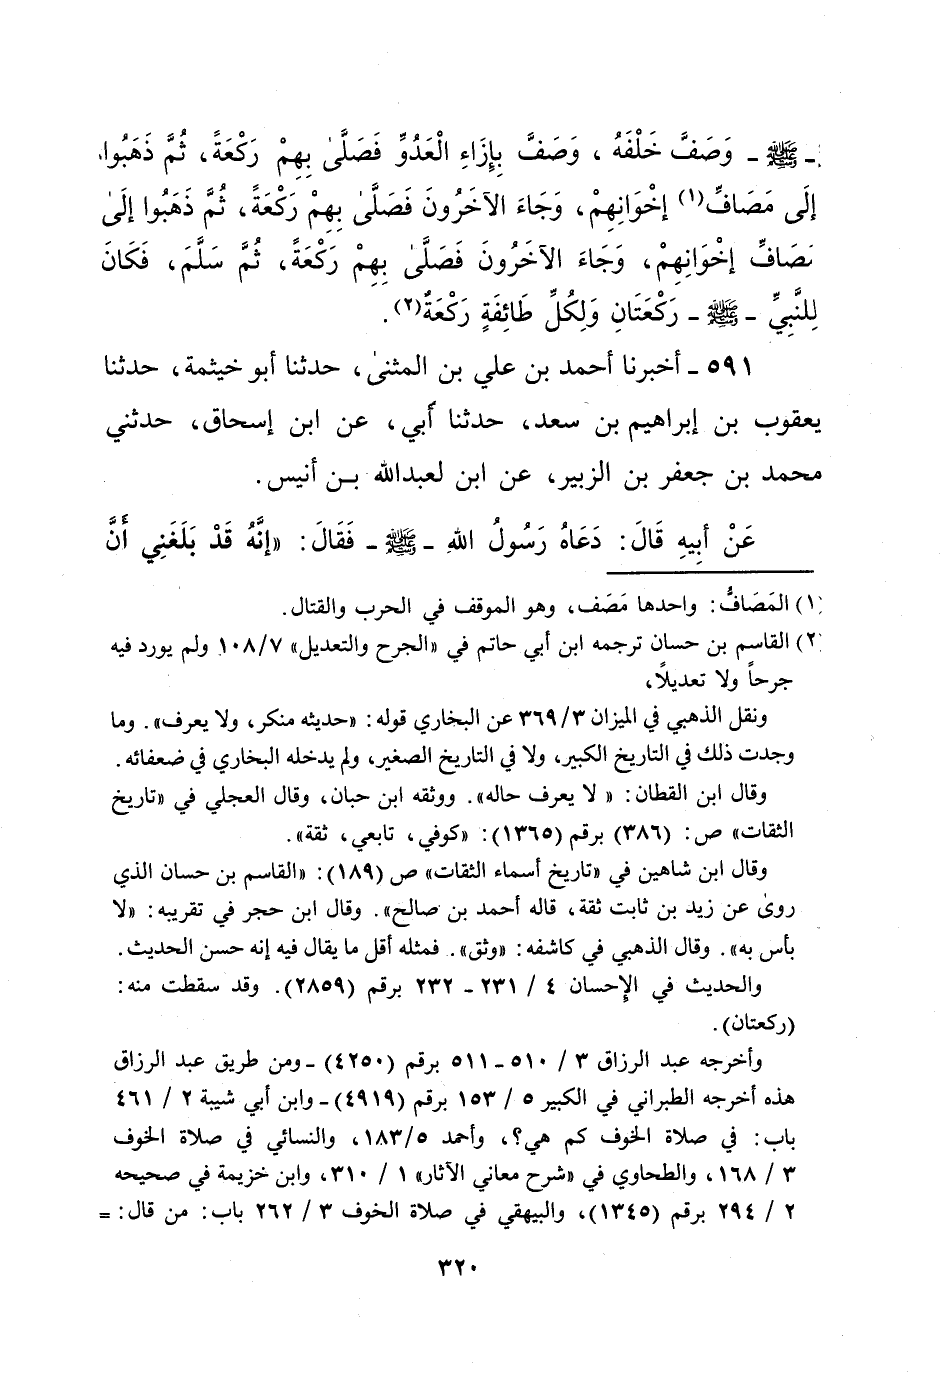 ـ ﷺ ـ وَصَفَّ خَلْفَهُ ، وَصَفَّ بِإِزَاءِ الْعَدُوِّ فَصَلَّىٰ بِهِمْ رَكْعَةً، ثُمَّ ذَهَبُوا
إِلَى مَصَافِّ(١) إِخْوَانِهِمْ، وَجَاءَ الآخَرُونَ فَصَلَّىٰ بِهِمْ رَكْعَةً، ثُمَّ ذَهَبُوا إِلىٰ
مَصَافِّ إِخْوَانِهِمْ، وَجَاءَ الآخَرُونَ فَصَلَّىٰ بِهِمْ رَكْعَةً، ثُمَّ سَلَّمَ، فَكَانَ
لِلنَّبِيِّ ـ ﷺ ـ رَكْعَتَانِ وَلِكُلِّ طَائِفَةٍ رَكْعَةٌ(٢).
٥٩١ ـ أخبرنا أحمد بن علي بن المثنىٰ، حدثنا أبو خيثمة، حدثنا
يعقوب بن إبراهيم بن سعد، حدثنا أبي، عن ابن إسحاق، حدثني
محمد بن جعفر بن الزبير، عن ابن لعبدالله بـن أنيس.
عَنْ أَبِيهِ قَالَ: دَعَاهُ رَسُولُ اللهِ ـ ﷺ ـ فَقَالَ: «إِنَّهُ قَدْ بَلَغَنِي أَنَّ
(١) المَصَافُّ: واحدها مَصَف، وهو الموقف في الحرب والقتال.
(٢) القاسم بن حسان ترجمه ابن أبي حاتم في «الجرح والتعديل» ١٠٨/٧ ولم يورد فيه
جرحاً ولا تعديلاً،
ونقل الذهبي في الميزان ٣٦٩/٣ عن البخاري قوله: «حديثه منكر، ولا يعرف». وما
وجدت ذلك في التاريخ الكبير، ولا في التاريخ الصغير، ولم يدخله البخاري في ضعفائه.
وقال ابن القطان: « لا يعرف حاله». ووثقه ابن حبان، وقال العجلي في «تاريخ
الثقات» ص: (٣٨٦) برقم (١٣٦٥): «كوفي، تابعي، ثقة».
وقال ابن شاهين في «تاريخ أسماء الثقات» ص (١٨٩): «القاسم بن حسان الذي
روىٰ عن زيد بن ثابت ثقة، قاله أحمد بن صالح». وقال ابن حجر في تقريبه: «لا
بأس به». وقال الذهبي في كاشفه: «وثق». فمثله أقل ما يقال فيه إنه حسن الحديث.
والحديث في الإحسان ٤ / ٢٣١ ـ ٢٣٢ برقم (٢٨٥٩). وقد سقطت منه:
(ركعتان).
وأخرجه عبد الرزاق ٣ / ٥١٠ ـ ٥١١ برقم (٤٢٥٠) ـ ومن طريق عبد الرزاق
هذه أخرجه الطبراني في الكبير ٥ / ١٥٣ برقم (٤٩١٩) ـ وابن أبي شيبة ٢ / ٤٦١
باب: في صلاة الخوف كم هي؟، وأحمد ١٨٣/٥، والنسائي في صلاة الخوف
٣ / ١٦٨، والطحاوي في «شرح معاني الآثار» ١ / ٣١٠، وابن خزيمة في صحيحه
٢ / ٢٩٤ برقم (١٣٤٥)، والبيهقي في صلاة الخوف ٣ / ٢٦٢ باب: من قال: =
٣٢٠